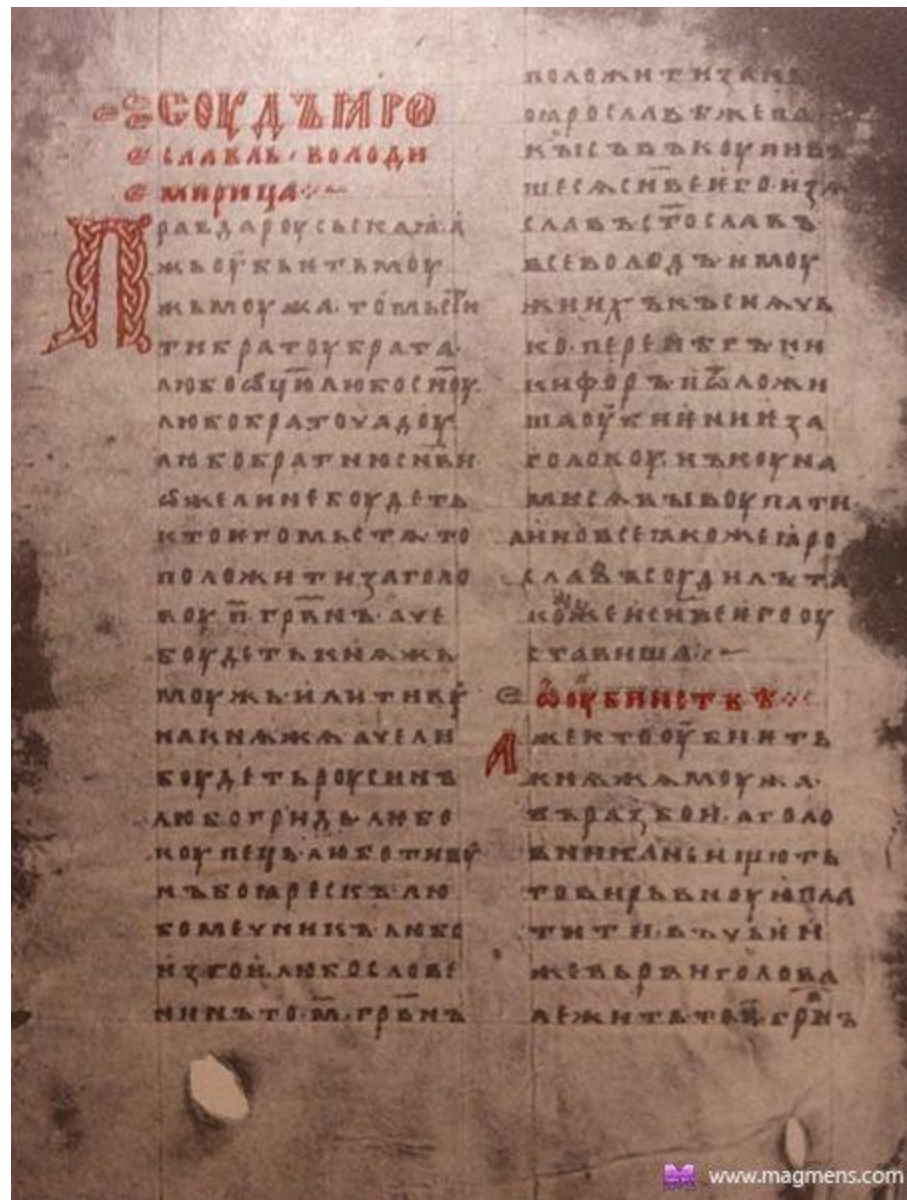 СОУДЪ ꙖРО
СЛАВЛЬ · ВОЛОДИ
МИРИЦА
Правда роусьскаꙗ · а
жь оубьить моу
жь моужа · то мьсти
ти братоу брата ·
любо ѿцю и любо сн҃оу ·
любо братоучадоу
любо братню сн҃ви
ѡже ли не боудеть
кто ѥго мьстѧ то
положити за голо
воу · п҃ · грвн҃ъ · аче
боудеть кнѧжь
моужь · или тиву
на кнѧжѧ · аче ли
боудеть роусинъ
любо гридь · любо
коупець · любо тиву
нъ боꙗрескъ · лю
бо мечникъ · любо
изгои · любо слове
нинъ то · м҃ · грвн҃ъ
положити за нь
по ꙗрославѣ же па
кы съвъкоупивъ
шесѧ сн҃ве ѥго · изѧ
славъ ст҃ославъ
всеволодъ · и моу
жи ихъ късѧчь
ко · перенѣгъ ни
кифоръ · и ѿложи
ша оубиѥниѥ за
головоу · нъ коуна
ми сѧ выкоупати ·
а ино все ꙗкоже ꙗро
славъ соудилъ та
коже и сн҃ве ѥго оу
ставиша ·
ѡ оубииствѣ
Аже кто оубиить
кнѧжѧ моужа ·
въ разбои · а голо
вника не ищють
то вирьвноую пла
тити · въ чьѥи
же вьрви голова
лежить то · п҃ · грвн҃ъ
www.magmens.com